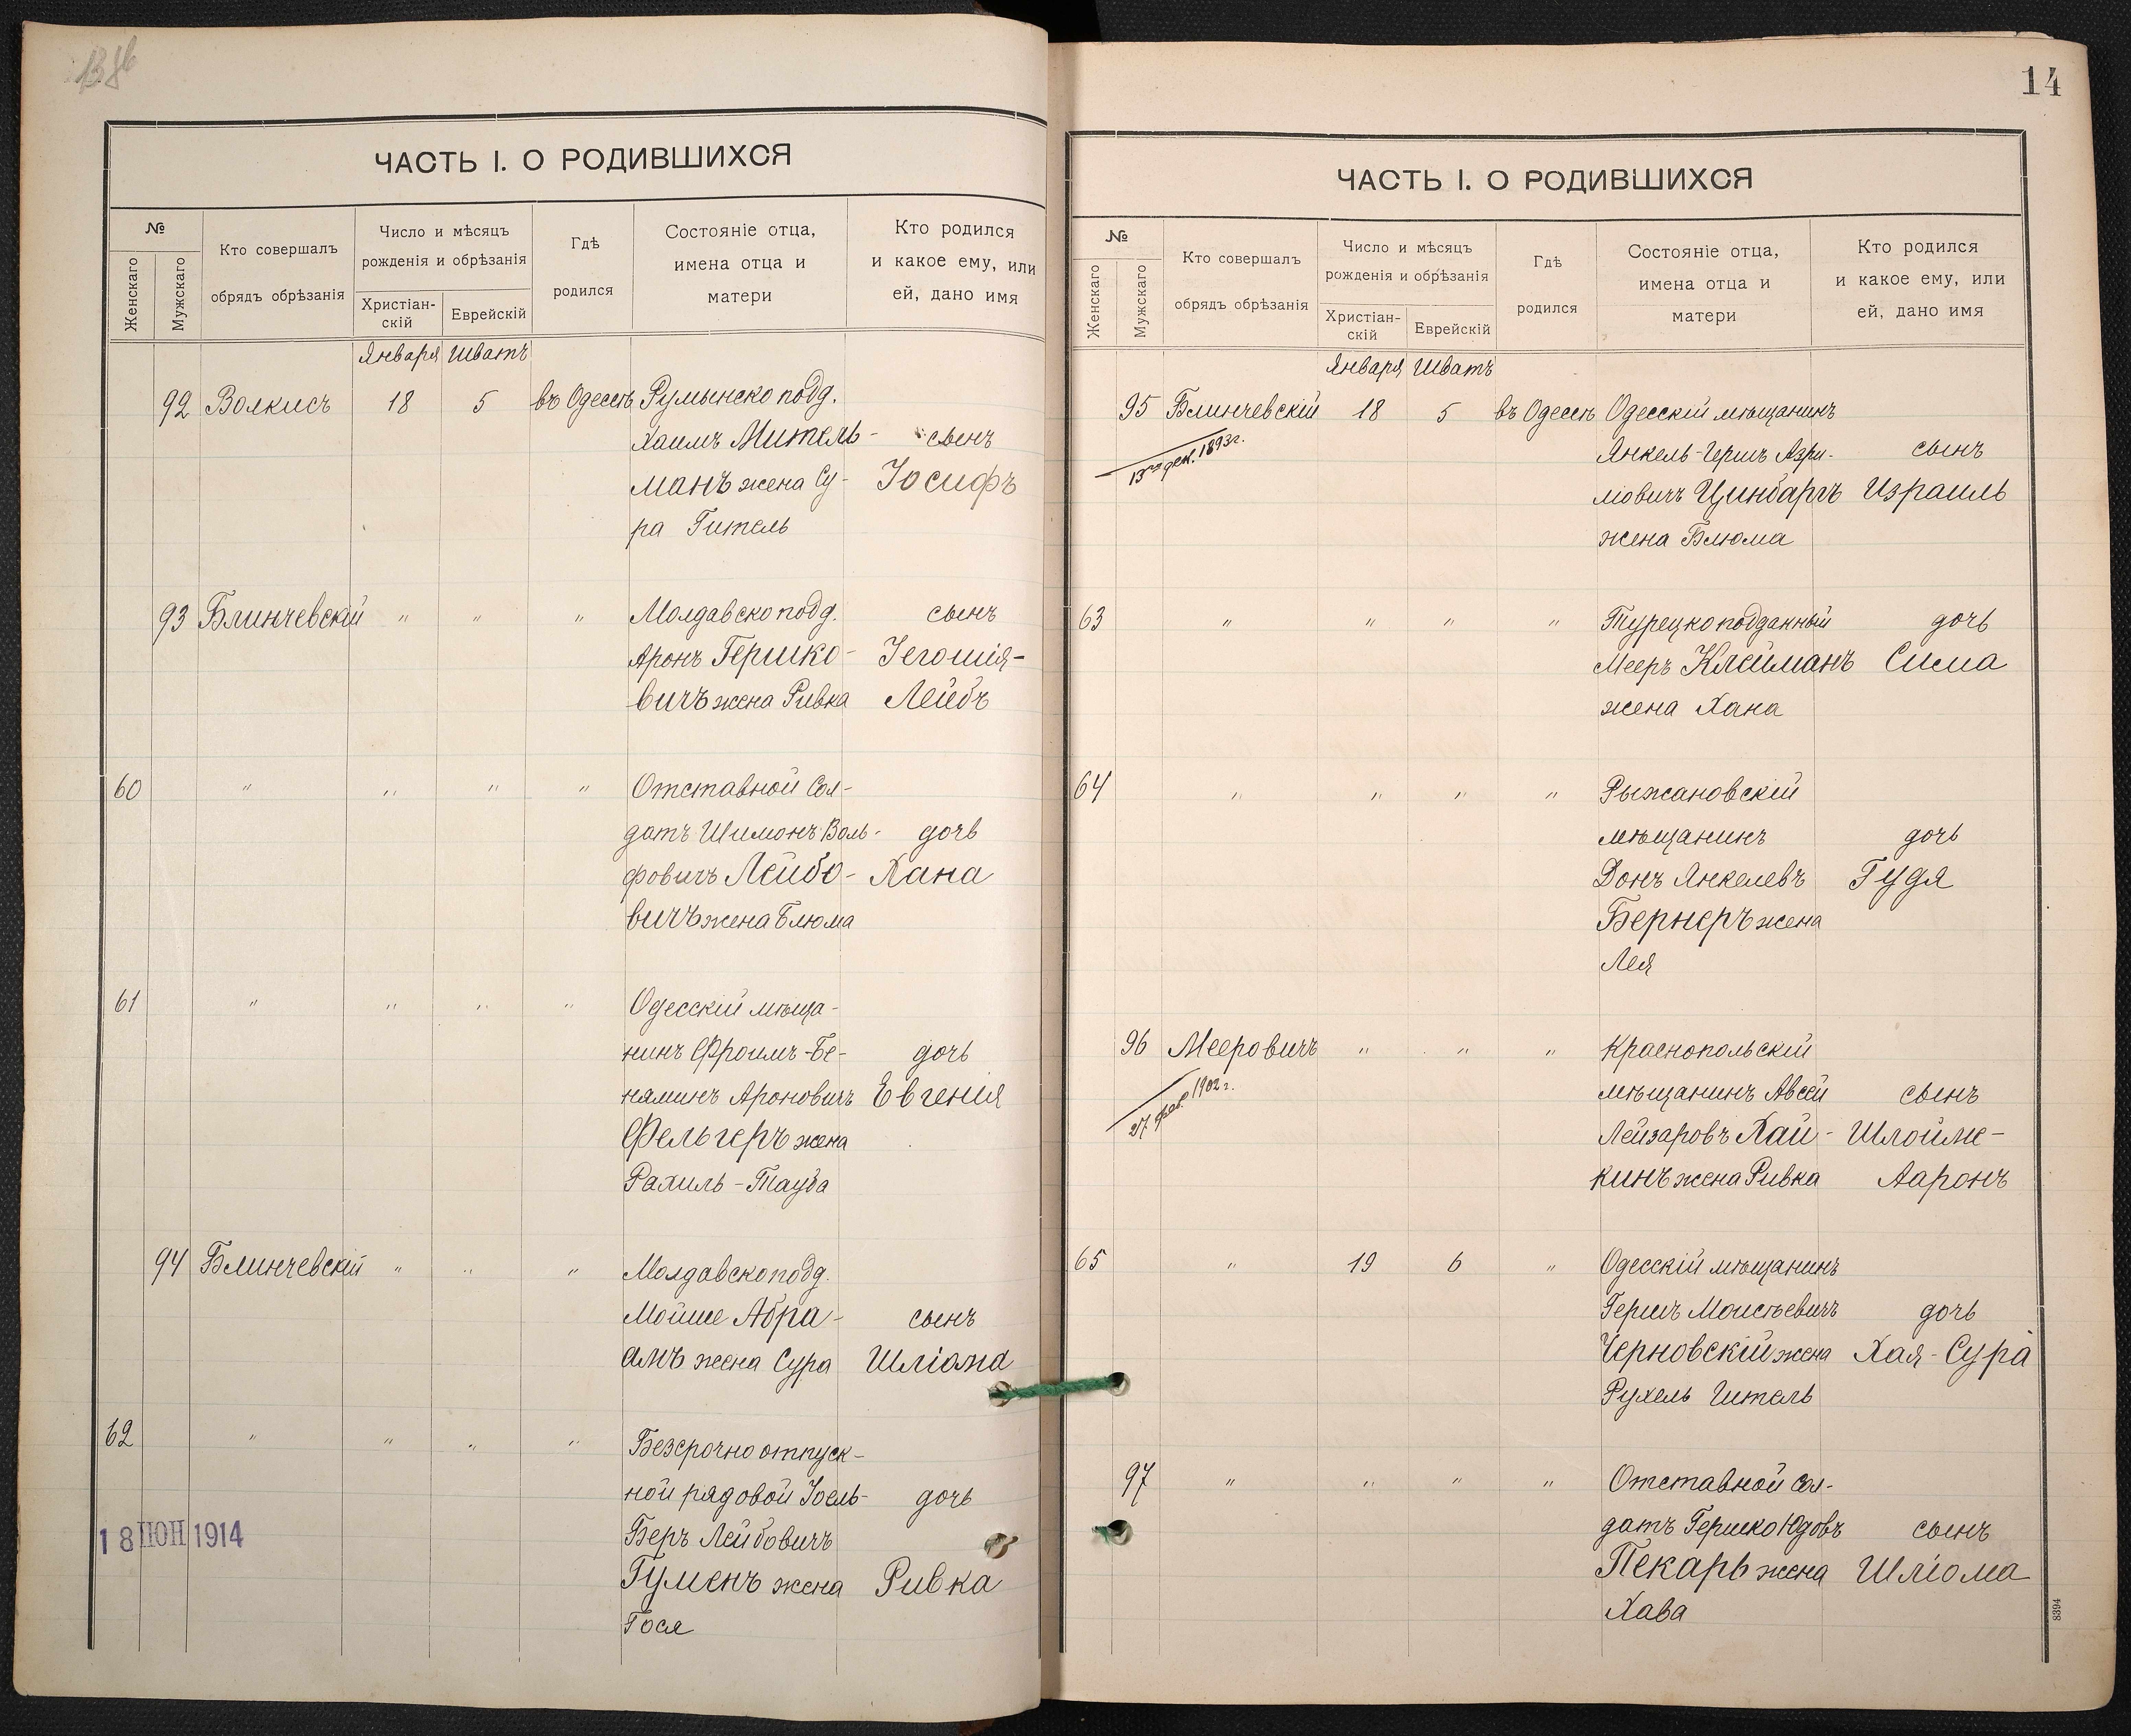 ЧАСТЬ I. О РОДИВШИХСЯ
№
Женскаго
Мужскаго
Кто совершалъ
обрядъ обрѣзанія
Число и мѣсяцъ
рожденія и обрѣзанія
Христіан-
скій
Еврейскій
Гдѣ
родился
Состояніе отца,
имена отца и
матери
Кто родился
и какое ему, или
ей, дано имя
Января Шватъ
92 Волкисъ 18 5 въ Одессѣ Румынско подд.
Хаимъ Митель- сынъ
манъ жена Су- Іосифъ
ра Гитель
93 Блинчевскій " " " Молдавско подд. сынъ
Аронъ Гершко- Іегошія-
вичъ жена Ривка Лейбъ
60 " " " " Отставной Сол-
датъ Шимонъ Воль- дочь
фовичъ Лейбо- Хана
вичъ жена Блюма
61 " " " " Одесскій мѣща-
нинъ Фроимъ-Бе- дочь
няминъ Ароновичъ Евгенія
Фельгеръ жена
Рахиль-Тауба
94 Блинчевскій " " " Молдавско подд.
Мойше Абра- сынъ
амъ жена Сура Шліома
62 " " " " Безсрочно отпуск-
ной рядовой Іоель- дочь
Беръ Лейбовичъ
Гуменъ жена Ривка
Гося
18 ІЮН 1914
14
ЧАСТЬ I. О РОДИВШИХСЯ
№
Женскаго
Мужскаго
Кто совершалъ
обрядъ обрѣзанія
Число и мѣсяцъ
рожденія и обрѣзанія
Христіан-
скій
Еврейскій
Гдѣ
родился
Состояніе отца,
имена отца и
матери
Кто родился
и какое ему, или
ей, дано имя
Января Шватъ
95 Блинчевскій 18 5 въ Одессѣ Одесскій мѣщанинъ
13го дек. 1893г.
Янкель-Гершъ Азри- сынъ
ліовичъ Цинбаргъ Израиль
жена Блюма
63 " " " " Турецкоподданный дочь
Мееръ Клейманъ Сима
жена Хана
64 " " " " Рыжановскій
мѣщанинъ дочь
Донъ Янкелевъ Гудя
Бернеръ жена
Лея
96 Мееровичъ " " " Краснопольскій
27 фев. 1902 г.
мѣщанинъ Авсей сынъ
Лейзаровъ Хай- Шлойме-
кинъ жена Ривка Ааронъ
65 " 19 6 " Одесскій мѣщанинъ
Гершъ Моисѣевичъ дочь
Черновскій жена Хая-Сура
Рухель Гитель
97 " " " " Отставной Сол-
датъ Гершко Юдовъ сынъ
Пекарь жена Шліома
Хава
8394